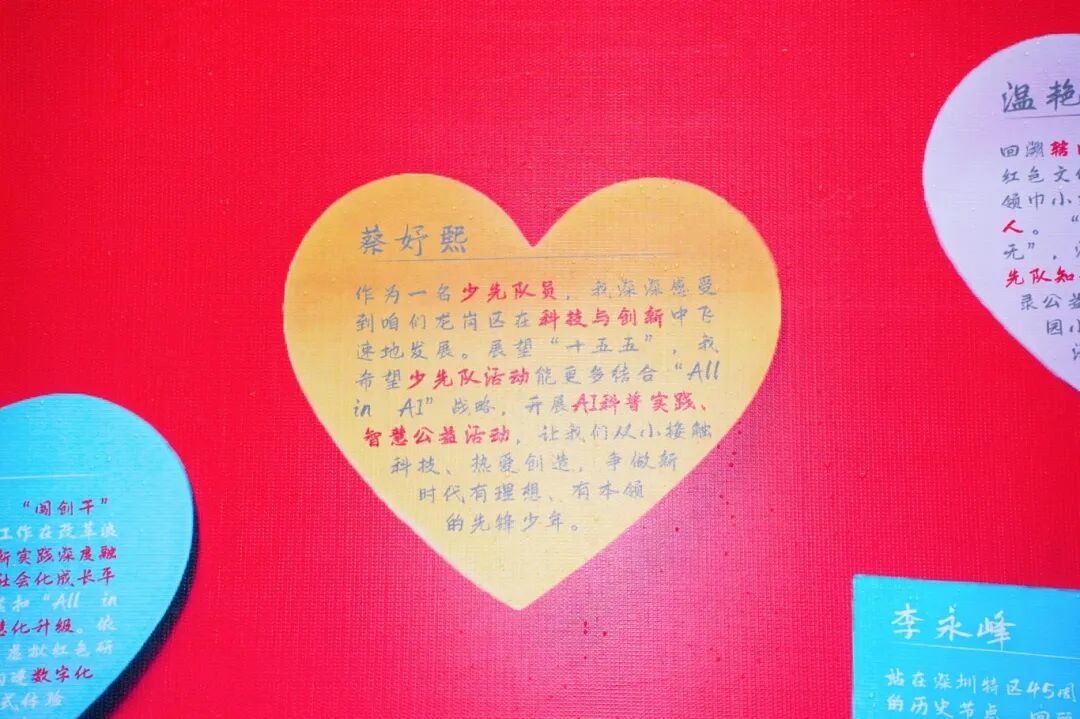 蔡妤熙
作为一名少先队员，我深深感受
到咱们龙岗区在科技与创新中飞
速地发展。展望“十五五”，我
希望少先队活动能更多结合“All
in AI”战略，开展AI科普实践、
智慧公益活动，让我们从小接触
科技、热爱创造，争做新
时代有理想、有本领
的先锋少年。
温艳
回溯辖
红色文
领巾小
人。“
无”，
先队知
录公益
因小
“闯创干”
工作在改革浪
新实践深度融
社会化成长平
“All in
慧化升级。依
虚拟红色研
建数字化
式体验
李永峰
站在深圳特区45周
的历史节点，回